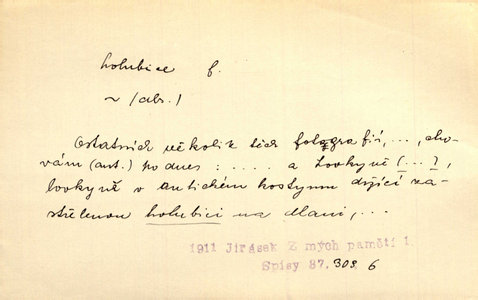 holubice f.
~ (abs.)
Ostatních několik těch fotografií, ..., cho-
vám (aut.) podnes: .... a Lovkyně (...),
lovkyně v antickém kostymu držící za-
střelenou holubici na dlani, ...
1911 Jirásek Z mých pamětí 1.
Spisy 37. 308 6